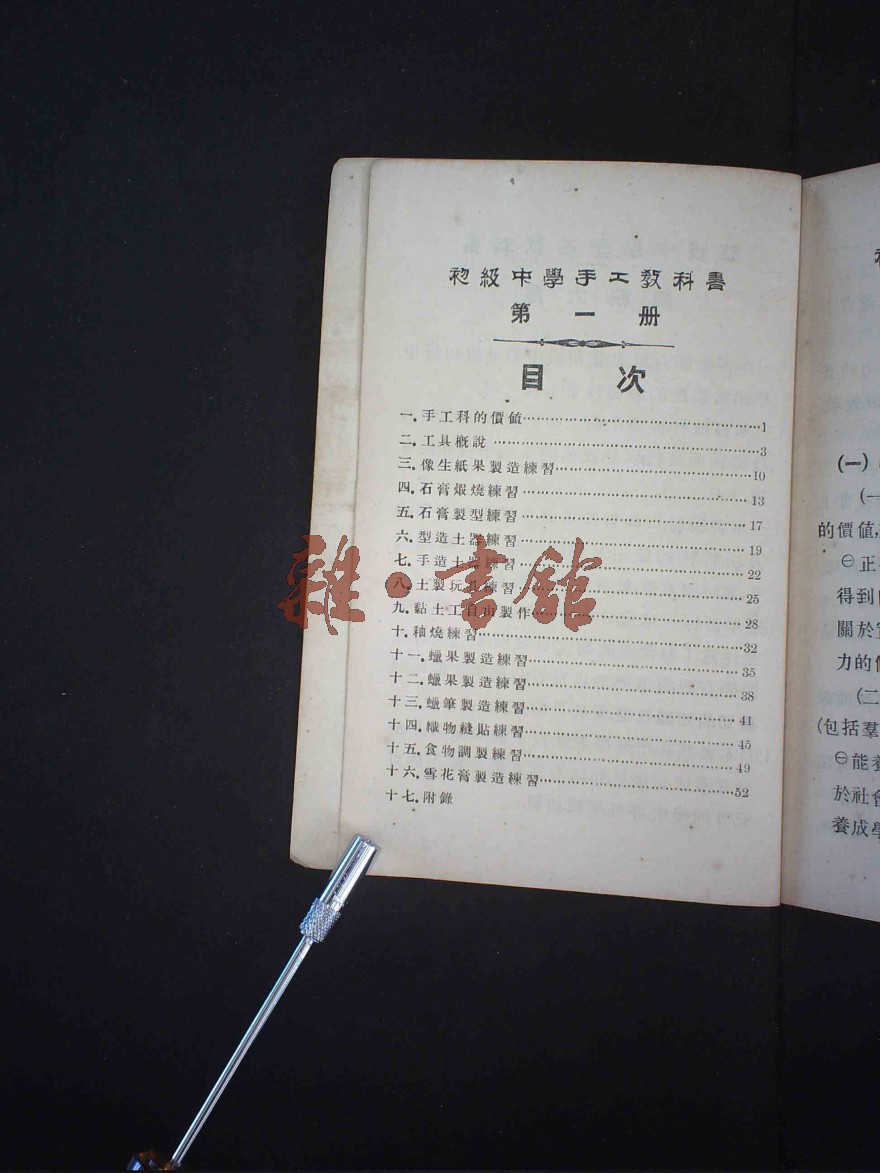 初級中學手工教科書
第一册
目次
一．手工科的價値……1
二．工具概說……3
三．像生紙果製造練習……10
四．石膏煆燒練習……13
五．石膏製型練習……17
六．型造土器練習……19
七．手造土器練習……22
八．土製玩具練習……25
九．黏土工自由製作……28
十．釉燒練習……32
十一．蠟果製造練習……35
十二．蠟果製造練習……38
十三．蠟筆製造練習……41
十四．織物縫貼練習……45
十五．食物調製練習……49
十六．雪花膏製造練習……52
十七．附錄
雜·書館
(一)
(一
的價値，
㊀正
得到
關於
力的
(二
(包括羣
㊀能養
於社會
養成學